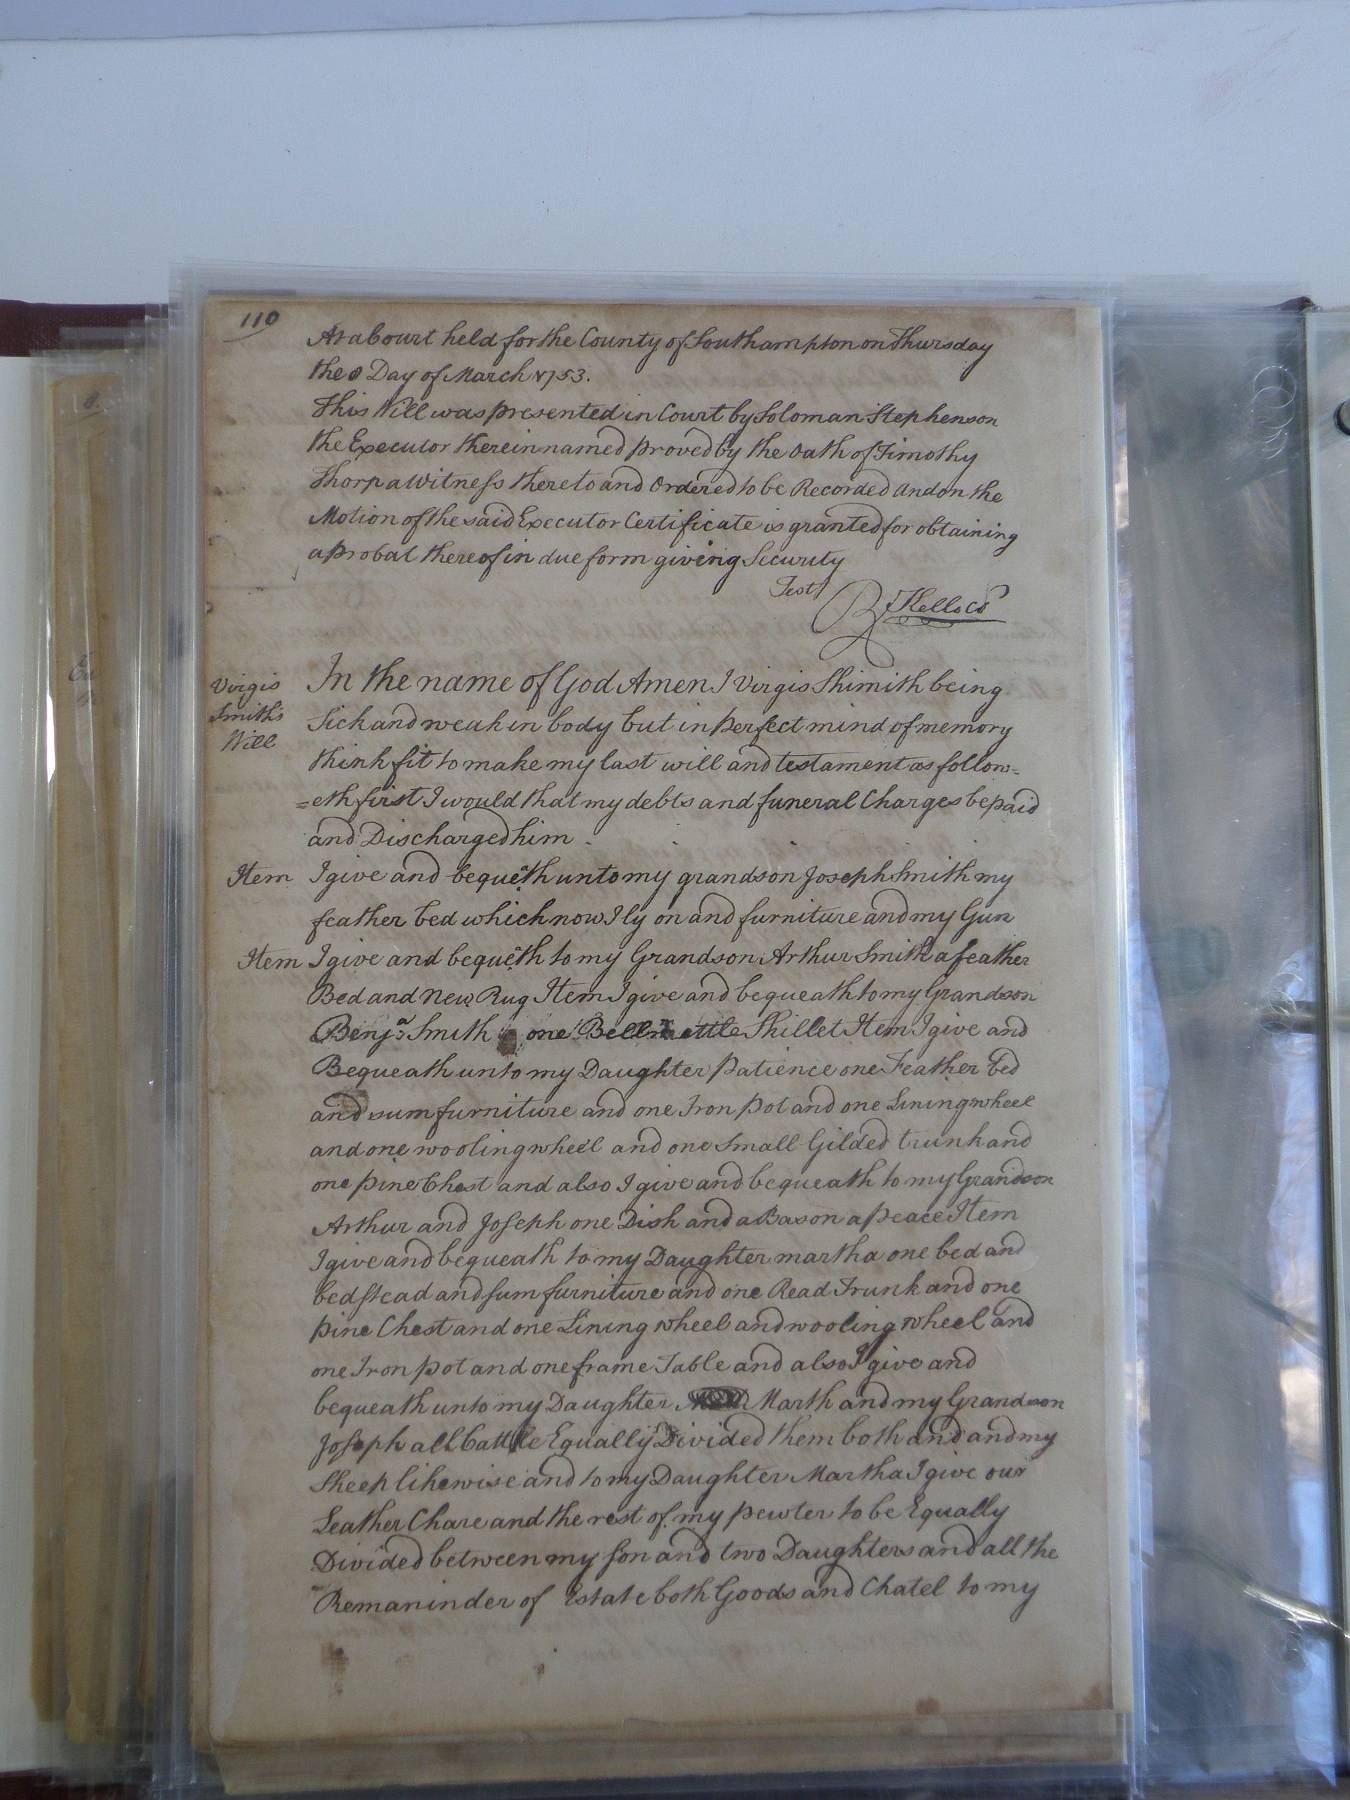 110
At a Court held for the County of Southampton on Thursday
the 8 Day of March 1753.
This Will was presented in Court by Soloman Stephenson
the Executor therein named proved by the Oath of Timothy
Thorp a Witness thereto and Ordered to be Recorded And on the
Motion of the said Executor Certificate is granted for obtaining
a probat thereof in due form giving Security
Test
R Kello Co
Virgis
Smith's
Will
In the name of God Amen I Virgis Shimith being
Sick and weak in body but in perfect mind of memory
think fit to make my last will and testament as follow=
=eth first I would that my debts and funeral Charges be paid
and Discharged him
Item I give and bequeth unto my grandson Joseph Smith my
feather bed which now I ly on and furniture and my Gun
Item I give and bequeth to my Grandson Arthur Smith a feather
Bed and New Rug Item I give and bequeath to my Grandson
Benja. Smith one Bellmettle Skillet Item I give and
Bequeath unto my Daughter Patience one Feather bed
and sum furniture and one Iron pot and one Lining wheel
and one wooling wheel and one Small Gilded trunk and
one pine Chest and also I give and bequeath to my Grandson
Arthur and Joseph one Dish and a Bason a peace Item
I give and bequeath to my Daughter martha one bed and
bedstead and sum furniture and one Read Trunk and one
pine Chest and one Lining wheel and wooling wheel and
one Iron pot and one frame Table and also I give and
bequeath unto my Daughter Marth and my Grandson
Joseph all Cattle Equally Divided them both and and my
Sheep likewise and to my Daughter Martha I give our
Leather Chare and the rest of my pewter to be Equally
Divided between my son and two Daughters and all the
Remaninder of Estate both Goods and Chatel to my